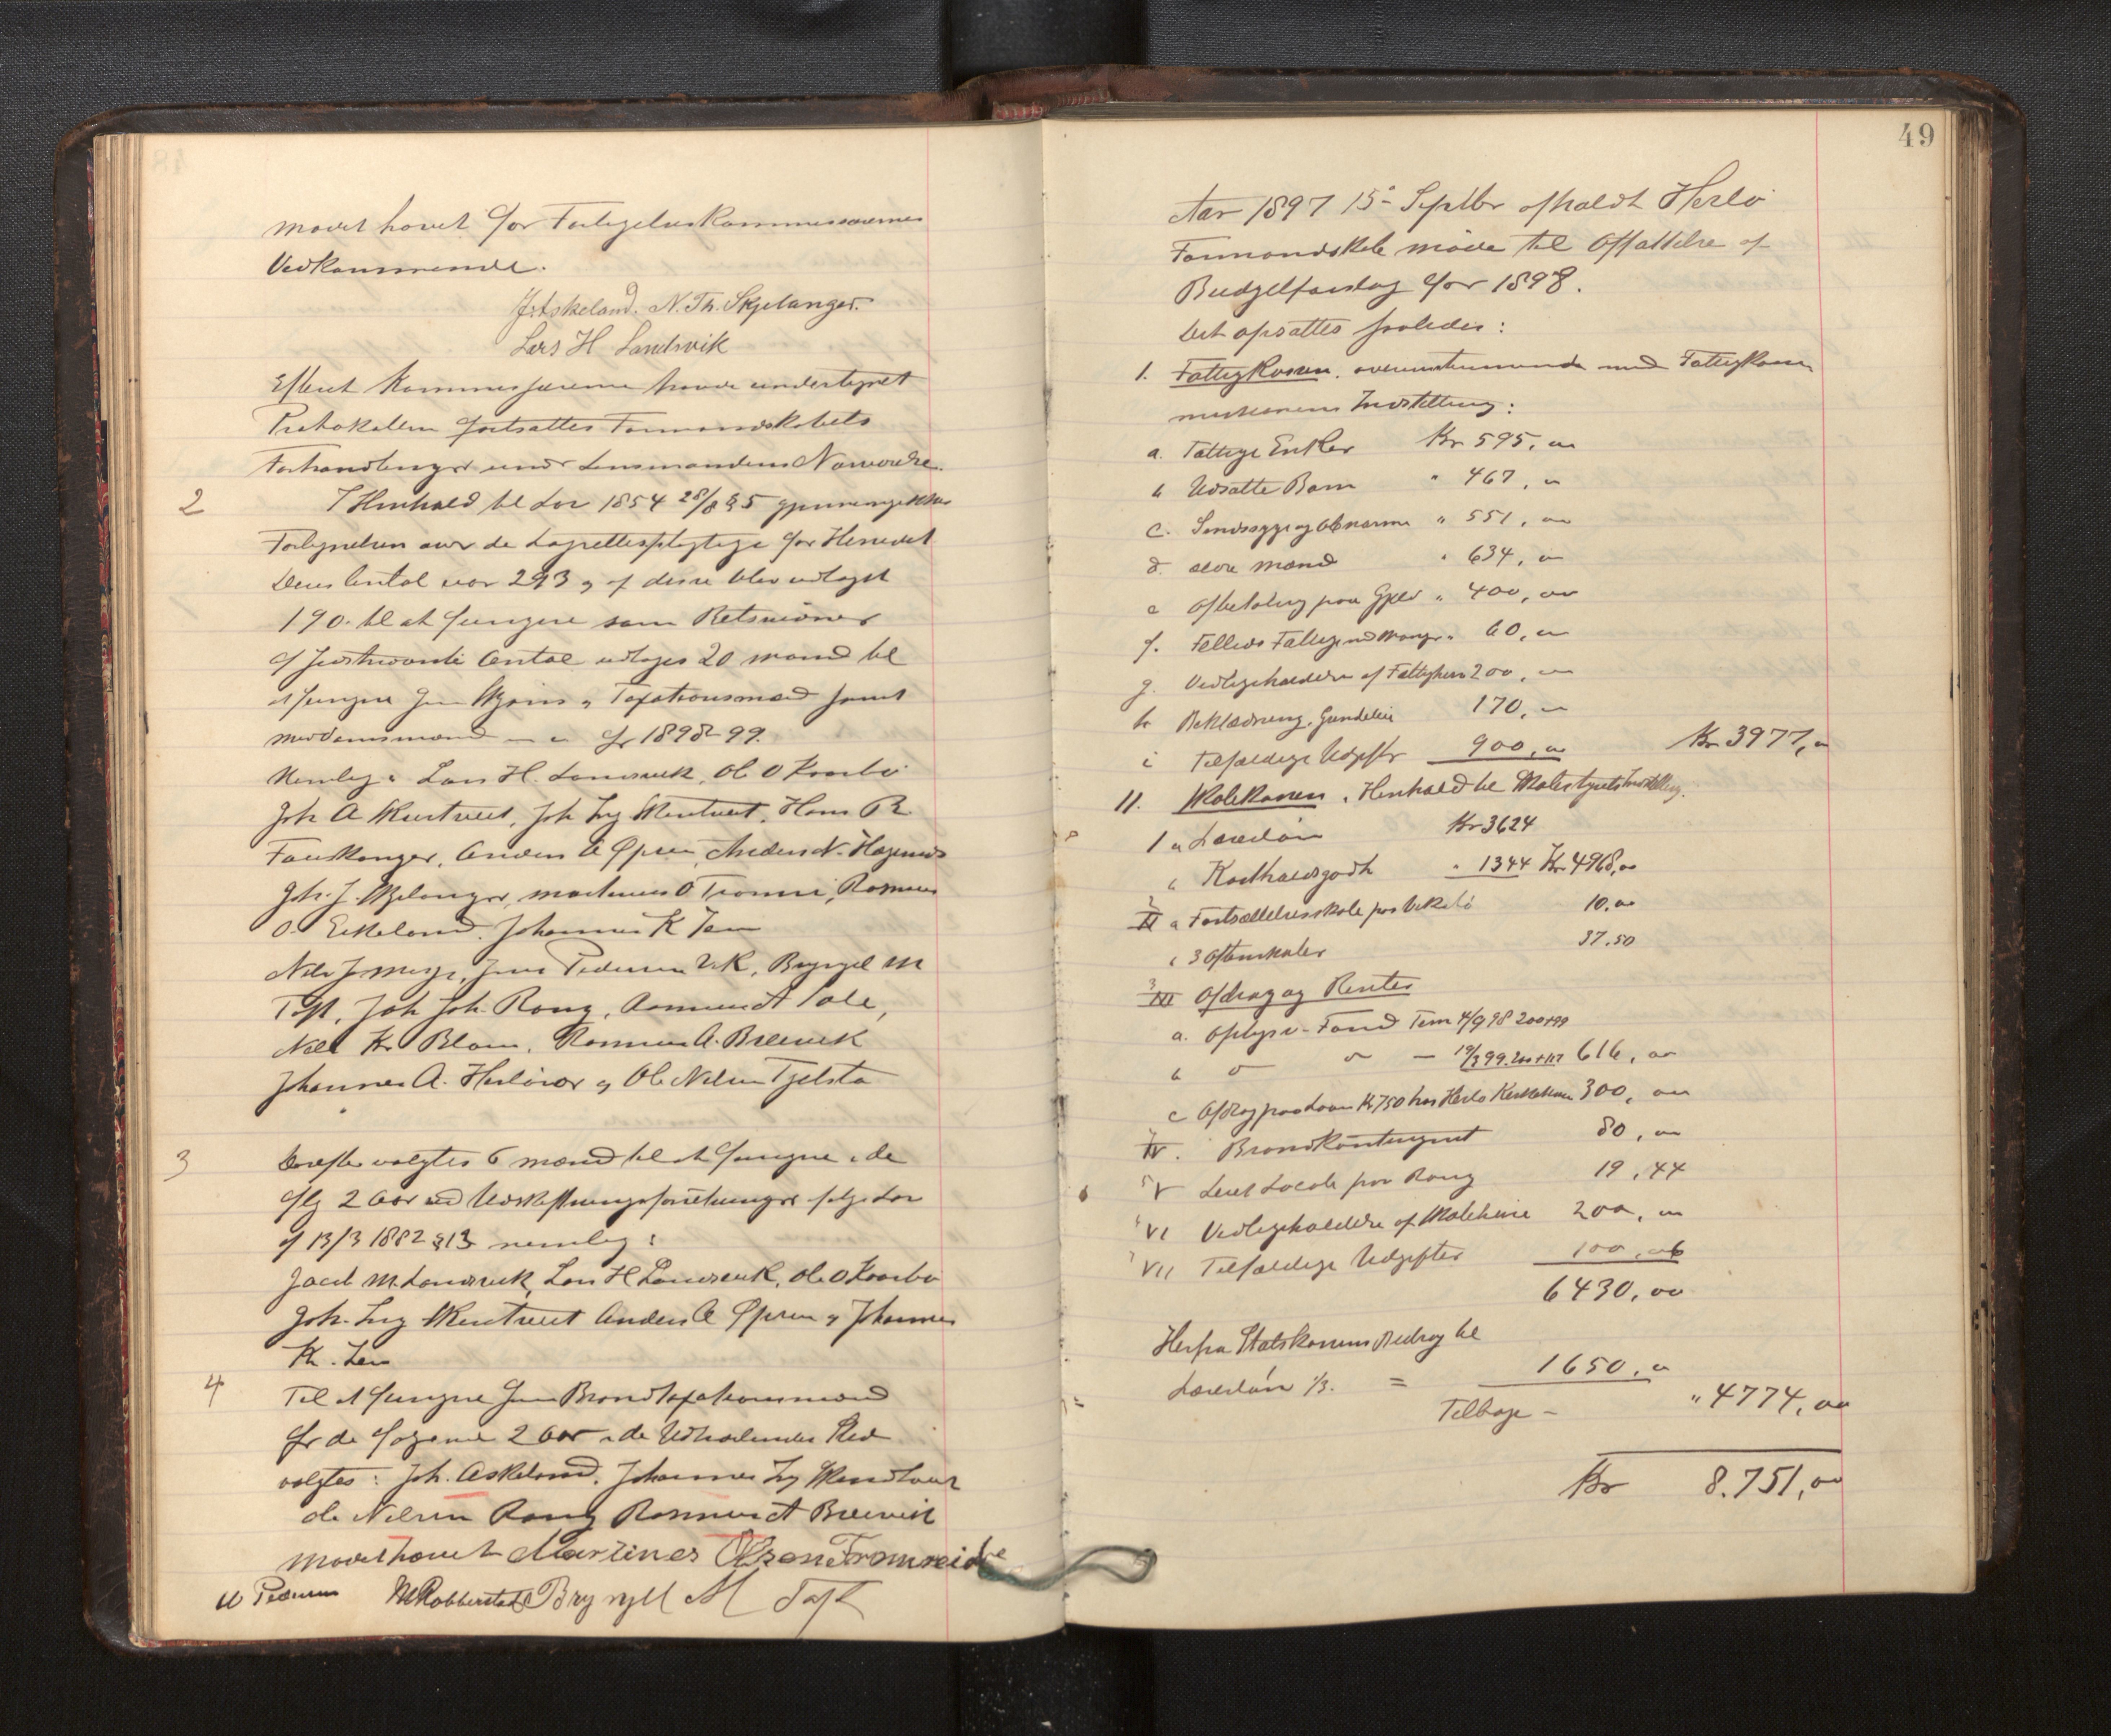 mødet hævet for Forligelseskommissærernes
Vedkommende.
J. Askeland. N. Th. Skjelanger.
Lars H Landsvik
Efterat Kommissærerne havde undertegnet
Protokollen fortsattes Formandskabets
Forhandlinger under Lensmandens Nærværelse.
2 I Henhold til Lov 1854 28/8 § 5 gjennemgikkes
Fortegnelsen over de Lagrettespligtige for Herredet
Deres Antal var 293 og af disse blev udtaget
190 til at fungere som Retsvidner
af førstnævnte Antal udtoges 20 mænd til
at fungere som Skjøns og Taxationsmænd samt
meddomsmænd for 1898-99.
Nemlig: Lars H. Landsvik, Ole O Krosbø
Joh A Skurtveit, Joh Ing Skurtveit, Hans R
Fauskanger, Anders A Øpsen, Anders N. Hagenæs
Joh. J. Skjelanger, Martinus O Tromri, Rasmus
O. Eikeland, Johannes K Ten
Nils J Misje, Jens Pedersen Vik, Brynjel M
Toft, Joh Joh. Rong, Aamund A Sæle,
Nils Kr Blom, Rasmus A. Breivik
Johannes A. Herløvær og Ole Nilsen Tjelstø
3 Derefter valgtes 6 mænd til at fungere i de
flg 2 Aar ved Udskiftningsforretninger ifølge Lov
af 13/3 1882 § 13 nemlig:
Jacob M. Landsvik, Lars H Landsvik, Ole O Krosbø
Joh. Ing Skurtveit Anders A Øpsen og Johannes
K. Ten
4 Til at fungere som Brandtaxationsmænd
for de følgende 2 Aar i de Udtrædendes Sted
valgtes: Joh. Askeland, Johannes Ing
Ole Nilsen Rong Rasmus A Breivik
mødet hævet Martines Olsen Fromreide
W Pedersen N Robberstad Brynjell M Toft
49
Aar 1897 15de Septbr afholdt Herlø
Formandskab møde til Affattelse af
Budgetforslag for 1898.
Det opsattes saaledes:
1. Fattigkassen, overensstemmende med Fattigkom-
missionens Indstilling:
a. Fattige Enker Kr 595,00
b Udsatte Børn " 467,00
c. Sindssyge og Abnorme " 551,00
d. ældre mænd " 634,00
e Afbetaling paa Gjæld " 400,00
f. Fælleds Fattige med Manger " 60,00
g. Vedligeholdelse af Fattighus 200,00
h Beklædning, 170,00
i Tilfældige Udgifter 900,00 Kr 3977,00
11. Skolekassen i Henhold til Skolestyrets Indstilling.
1 a Lærerløn Kr 3624
b Kostholdsgodtg " 1344 Kr 4968,00
2 II a Fortsættelsesskole paa 10,00
b 3 Aftenskoler 37.50
3 III Afdrag og Renter
a. Oplysn. Fond Term 4/9 98 200+99
b do do — 19/3 99. 200+117 616,00
c Afdrag paa Laan Kr 750 hos Herlø 300,00
4 IV. Brandkontingent 80,00
5 V Leiet Locale paa Rong 19,44
6 VI Vedligeholdelse af Skolehuse 200,00
7 VII Tilfældige Udgifter 100,06
6430,00
Herfra Statskassens Bidrag til
Lærerløn 1/3. = 1650,00
Tilbage – " 4774,00
Kr 8.751,00